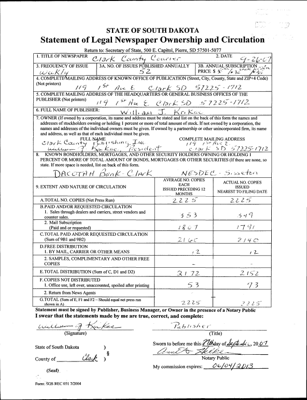 STATE OF SOUTH DAKOTA
Statement of Legal Newspaper Ownership and Circulation
Return to: Secretary of State, 500 E. Capitol, Pierre, SD 57501-5077
1. TITLE OF NEWSPAPER Clark County Courier
2. DATE
3. FREQUENCY OF ISSUE
weekly
3A. NO. OF ISSUES PUBLISHED ANNUALLY
52
3B. ANNUAL SUBSCRIPTION
PRICE $
4. COMPLETE MAILING ADDRESS OF KNOWN OFFICE OF PUBLICATION (Street, City, County, State and ZIP+4 Code)
(Not printers)
119 1st Ave E Clark SD 57225-1712
5. COMPLETE MAILING ADDRESS OF THE HEADQUARTERS OR GENERAL BUSINESS OFFICES OF THE
PUBLISHER (Not printers)
119 1st Ave E. Clark SD 57225-1712
6. FULL NAME OF PUBLISHER:
William J. Krikac
7. OWNER (If owned by a corporation, its name and address must be stated and list on the back of this form the names and
addresses of stockholders owning or holding 1 percent or more of total amount of stock. If not owned by a corporation, the
names and addresses of the individual owners must be given. If owned by a partnership or other unincorporated firm, its name
and address, as well as that of each individual must be given.
FULL NAME
COMPLETE MAILING ADDRESS
Clark County Publishing, Inc
119 1st Ave E
William J Krikac President
Clark SD 57225-1712
8. KNOWN BONDHOLDERS, MORTGAGES, AND OTHER SECURITY HOLDERS OWNING OR HOLDING 1
PERCENT OR MORE OF TOTAL AMOUNT OF BONDS, MORTGAGES OR OTHER SECURITIES (If there are none, so
state. If more space is needed, list on back of this form.
DACOTAH Bank Clark
NESDEC
9. EXTENT AND NATURE OF CIRCULATION
AVERAGE NO. COPIES
EACH
ISSUED PRECEDING 12
MONTHS
ACTUAL NO. COPIES
ISSUED
NEAREST TO FILING DATE
A. TOTAL NO. COPIES (Net Press Run)
2225
2225
B. PAID AND/OR REQUESTED CIRCULATION
1. Sales through dealers and carriers, street vendors and
counter sales
353
349
2. Mail Subscription
(Paid and/or requested)
1807
1791
C. TOTAL PAID AND/OR REQUESTED CIRCULATION
(Sum of 9B1 and 9B2)
2160
2140
D. FREE DISTRIBUTION
1. BY MAIL, CARRIER OR OTHER MEANS
12
12
2. SAMPLES, COMPLIMENTARY AND OTHER FREE
COPIES
E. TOTAL DISTRIBUTION (Sum of C, D1 and D2)
2172
2152
F. COPIES NOT DISTRIBUTED
1. Office use, left over, unaccounted, spoiled after printing
53
73
2. Return from News Agents
G. TOTAL (Sum of E, F1 and F2 - Should equal net press run
shown in A)
2225
2225
Statement must be signed by Publisher, Business Manager, or Owner in the presence of a Notary Public
I swear that the statements made by me are true, correct, and complete:
William J Krikac
Publisher
(Signature)
(Title)
State of South Dakota )
County of Clark )
Sworn to before me this
Notary Public
(Seal)
My commission expires: 04/04/2013
Form: SOS REC 051 7/2004